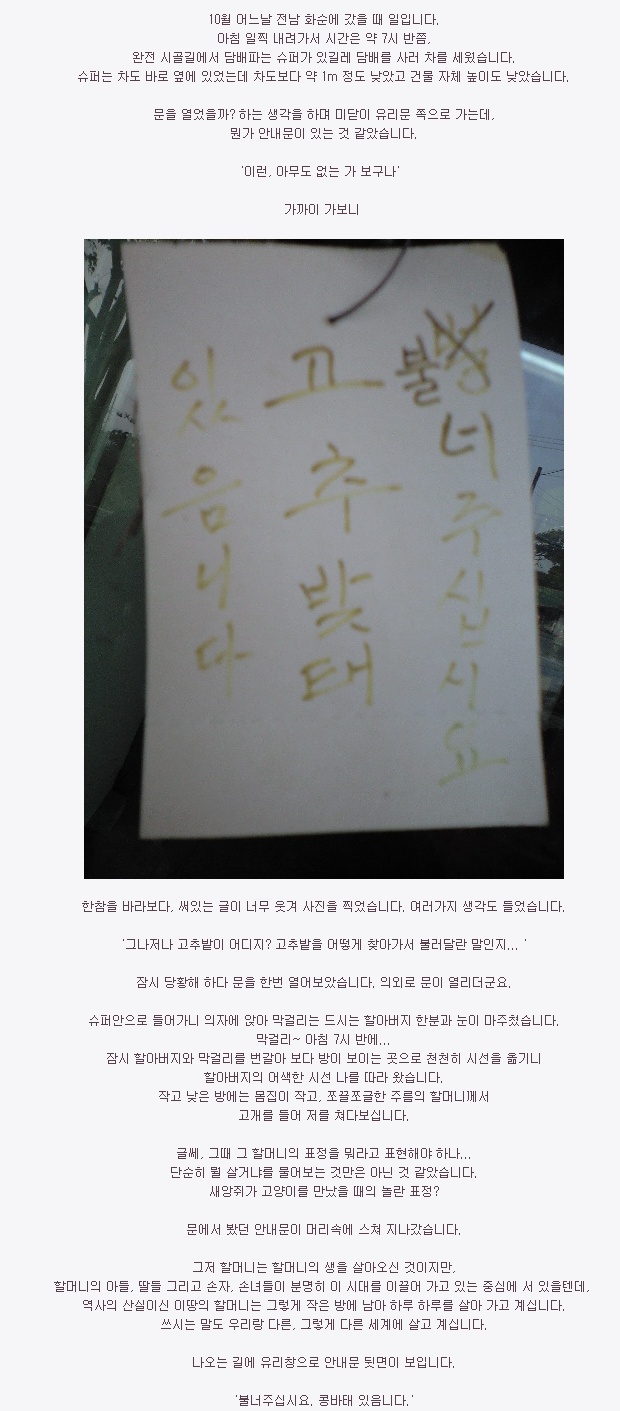 10월 어느날 전남 화순에 갔을 때 일입니다.
아침 일찍 내려가서 시간은 약 7시 반쯤,
완전 시골길에서 담배파는 슈퍼가 있길레 담배를 사러 차를 세웠습니다.
슈퍼는 차도 바로 옆에 있었는데 차도보다 약 1m 정도 낮았고 건물 자체 높이도 낮았습니다.
문을 열었을까? 하는 생각을 하며 미닫이 유리문 쪽으로 가는데,
뭔가 안내문이 있는 것 같았습니다.
'이런, 아무도 없는 가 보구나'
가까이 가보니
불너주십시요
고추밪태
있음니다
한참을 바라보다, 써있는 글이 너무 웃겨 사진을 찍었습니다. 여러가지 생각도 들었습니다.
'그나저나 고추밭이 어디지? 고추밭을 어떻게 찾아가서 불러달란 말인지... '
잠시 당황해 하다 문을 한번 열어보았습니다. 의외로 문이 열리더군요.
슈퍼안으로 들어가니 의자에 앉아 막걸리는 드시는 할아버지 한분과 눈이 마주쳤습니다.
막걸리~ 아침 7시 반에...
잠시 할아버지와 막걸리를 번갈아 보다 방이 보이는 곳으로 천천히 시선을 옮기니
할아버지의 어색한 시선 나를 따라 왔습니다.
작고 낮은 방에는 몸집이 작고, 쪼끌쪼글한 주름의 할머니께서
고개를 들어 저를 쳐다보십니다.
글쎄, 그때 그 할머니의 표정을 뭐라고 표현해야 하나...
단순히 뭘 살거냐를 물어보는 것만은 아닌 것 같았습니다.
새앙쥐가 고양이를 만났을 때의 놀란 표정?
문에서 봤던 안내문이 머리속에 스쳐 지나갔습니다.
그저 할머니는 할머니의 생을 살아오신 것이지만,
할머니의 아들, 딸들 그리고 손자, 손녀들이 분명히 이 시대를 이끌어 가고 있는 중심에 서 있을텐데,
역사의 산실이신 이땅의 할머니는 그렇게 작은 방에 남아 하루 하루를 살아 가고 계십니다.
쓰시는 말도 우리랑 다른, 그렇게 다른 세계에 살고 계십니다.
나오는 길에 유리창으로 안내문 뒷면이 보입니다.
'불너주십시요. 콩바태 있음니다.'